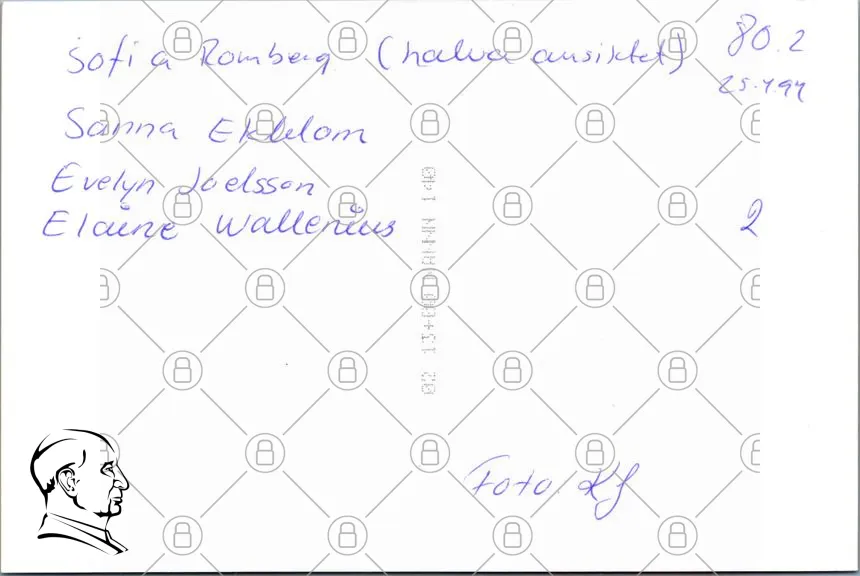 Sofia Romberg (halva ansiktet) 80.2
25.4.94
Sanna Ekblom
Evelyn Joelsson
Elaine Wallenius
2
Foto